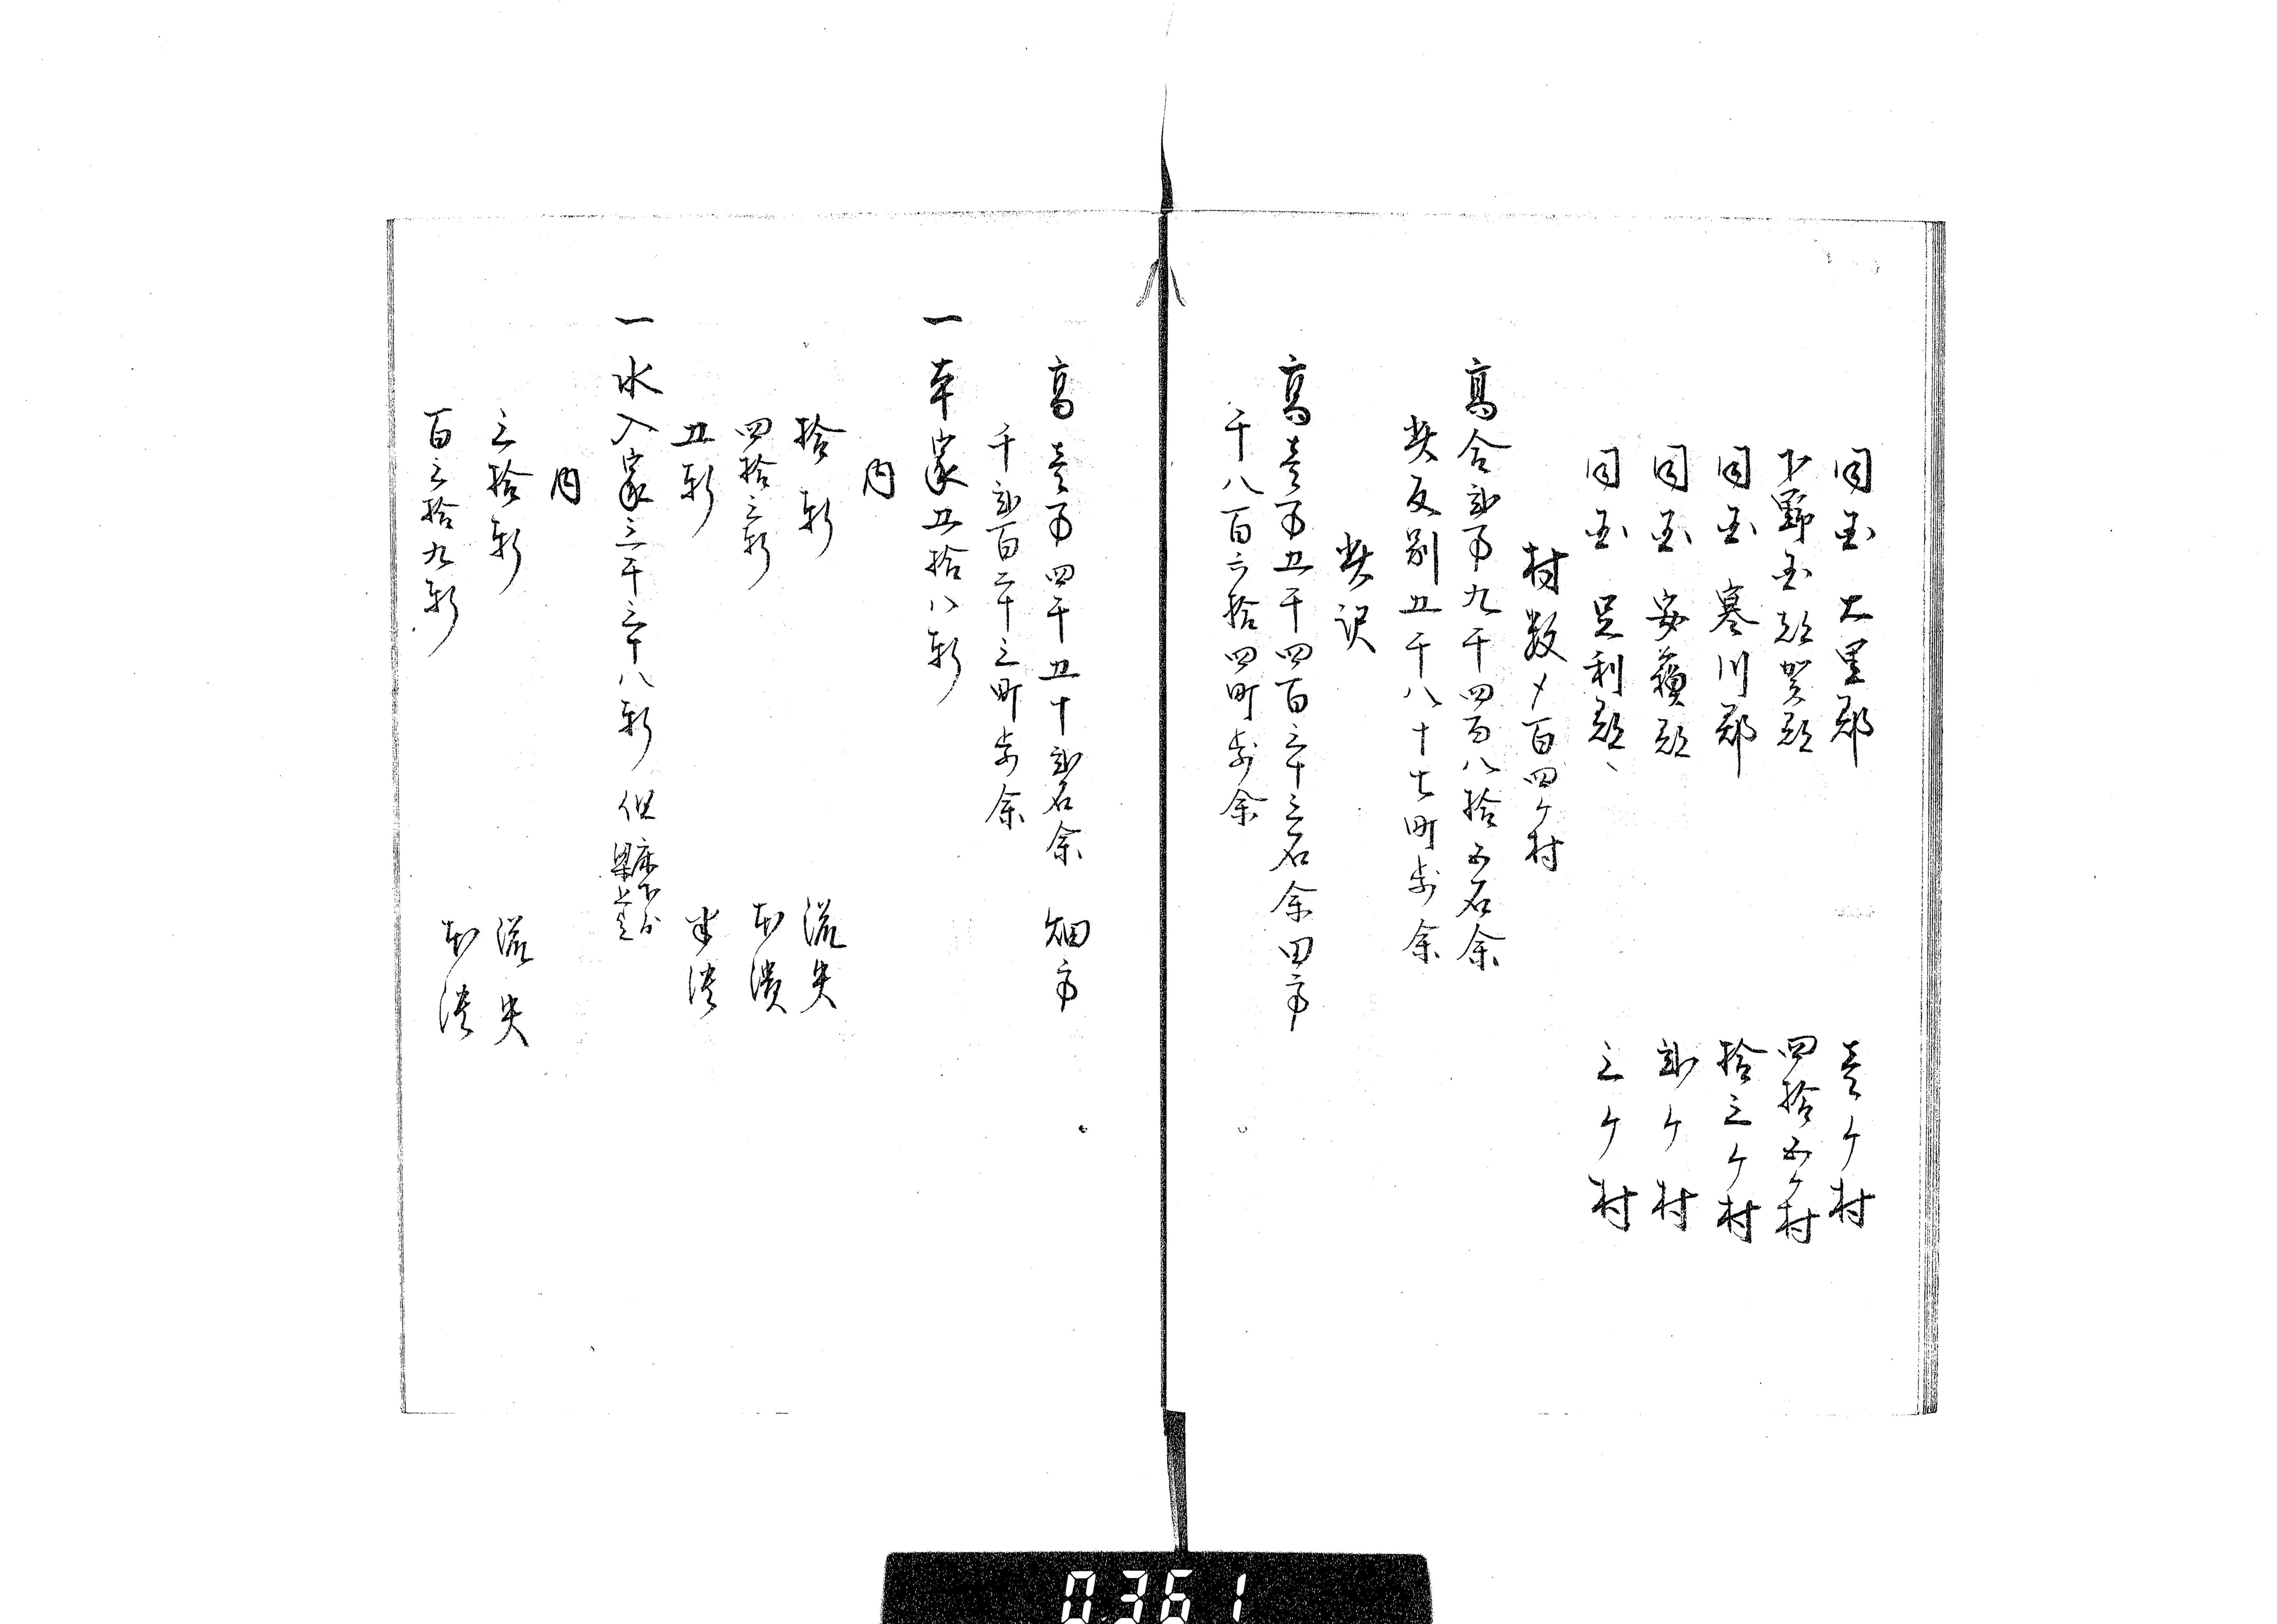 同国 大里郡 壱ケ村
下野国都賀郡 四拾五ケ村
同国 寒川郡 拾三ケ村
同国 安蘓郡 弐ケ村
同国 足利郡 三ケ村
村数〆百四ケ村
高合弐万九千四百八拾五石余
此反別五千八十七町歩余
此訳
高壱万五千四百三十三石余 田方
千八百六拾四町歩余
高壱万四千五十弐石余 畑方
千弐百二十三町歩余
一 本家五拾八軒
内
拾軒 流失
四拾三軒 本潰
五軒 半潰
一 水入家三千三十八軒 但 床下ゟ
内
三拾軒 流失
百三拾九軒 本潰
0361